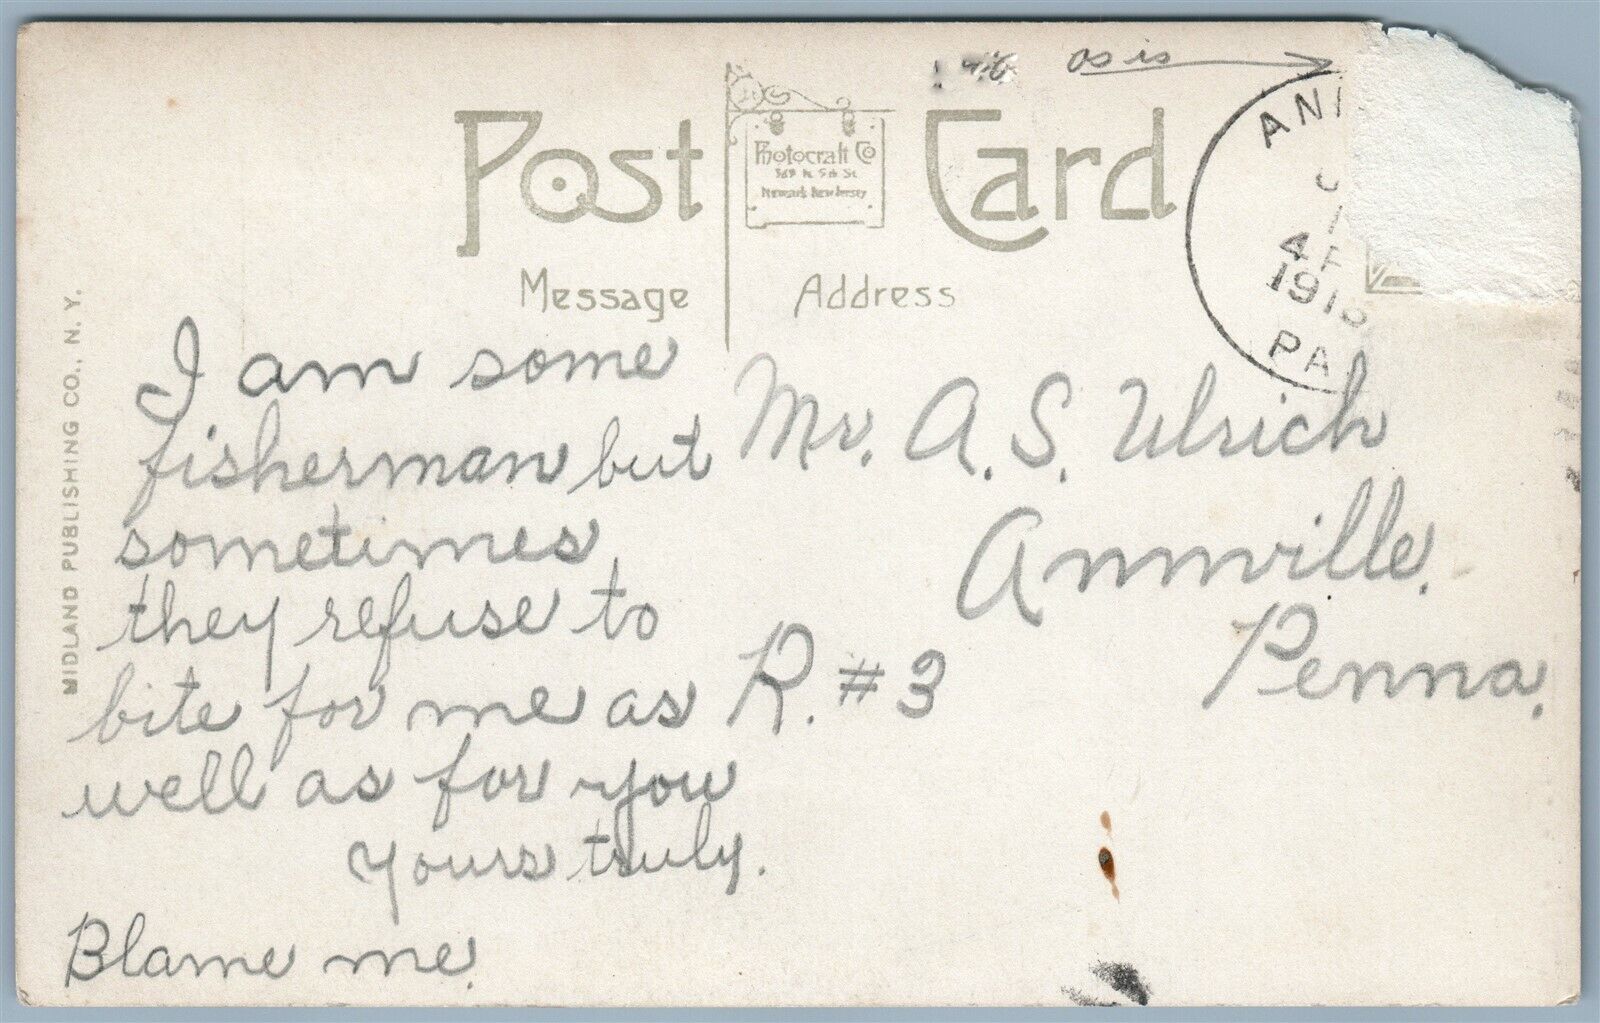 as is
Post Card
Photocraft Co
369 N. 5th St
Newark New Jersey
Message
Address
ANN
4 P
191
PA
MIDLAND PUBLISHING CO., N. Y.
I am some
fisherman but
sometimes
they refuse to
bite for me as
well as for you
yours truly.
Blame me.
Mr. A. S. Ulrich
Annville.
Penna.
R. #3